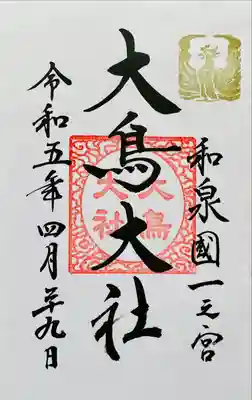 和泉國一之宮
大鳥大社
大鳥大社
令和五年四月廿九日